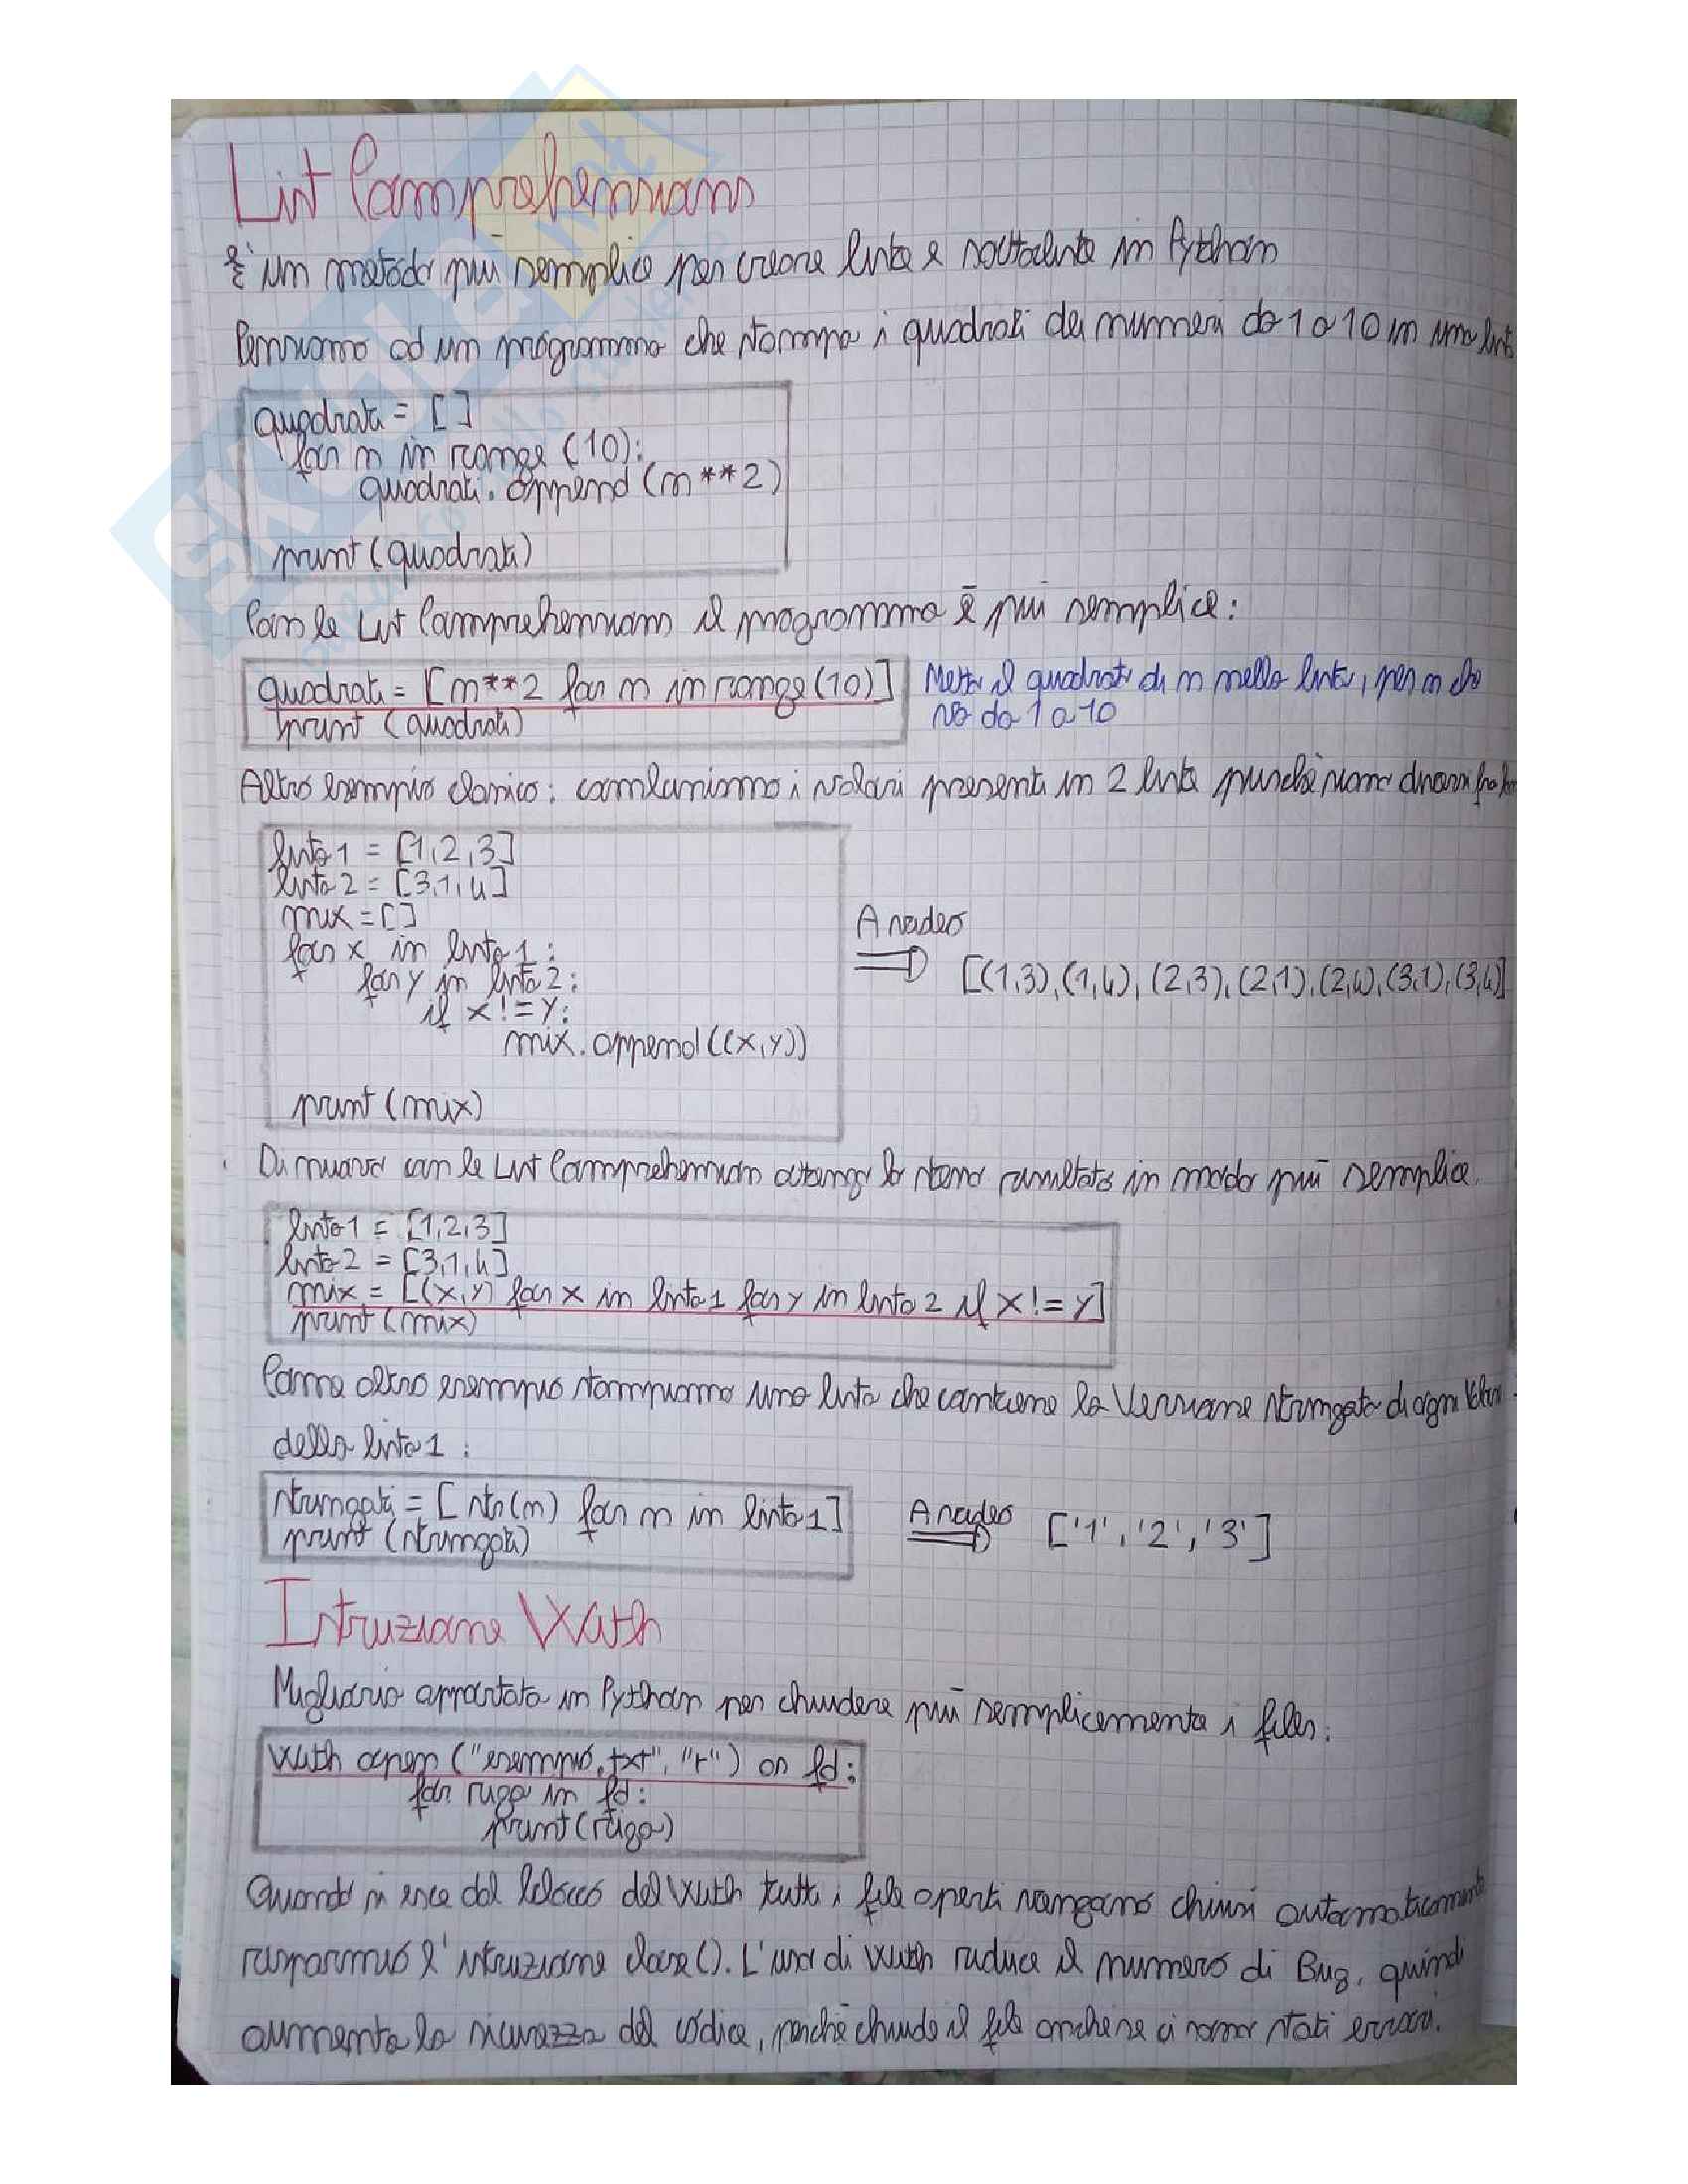 List Comprehensions
E' un metodo più semplice per creare liste e sottoliste in Python
Pensiamo ad un programma che stampa i quadrati dei numeri da 1 a 10 in una list
quadrati = []
for n in range (10):
quadrati.append (n**2)
print (quadrati)
Con le List Comprehensions il programma è più semplice:
quadrati = [n**2 for n in range (10)]
print (quadrati)
Metti il quadrato di n nella lista, per n che
va da 1 a 10
Altro esempio classico: combiniamo i valori presenti in 2 liste purchè siano diversi fra
lista1 = [1,2,3]
lista2 = [3,1,4]
mix = []
for x in lista1:
for y in lista2:
if x != y:
mix.append((x,y))
print (mix)
A video
[(1,3),(1,4),(2,3),(2,1),(2,4),(3,1),(3,4)]
Di nuovo con le List Comprehension ottengo lo stesso risultato in modo più semplice.
lista1 = [1,2,3]
lista2 = [3,1,4]
mix = [(x,y) for x in lista1 for y in lista2 if x != y]
print (mix)
Come altro esempio stampiamo una lista che contiene la versione stringata di ogni
della lista1:
stringati = [str(n) for n in lista1]
print (stringati)
A video
['1','2','3']
Istruzione With
Miglioria apportata in Python per chiudere più semplicemente i files:
with open ("esempio.txt","r") as fd:
for riga in fd:
print (riga)
Quando si esce dal blocco del with tutti i file aperti vengano chiusi automaticamente
risparmio l'istruzione close(). L'uso di with riduce il numero di Bug, quindi
aumenta la sicurezza del codice, perchè chiude il file anche se ci sono stati errori.
SKUOLA.net